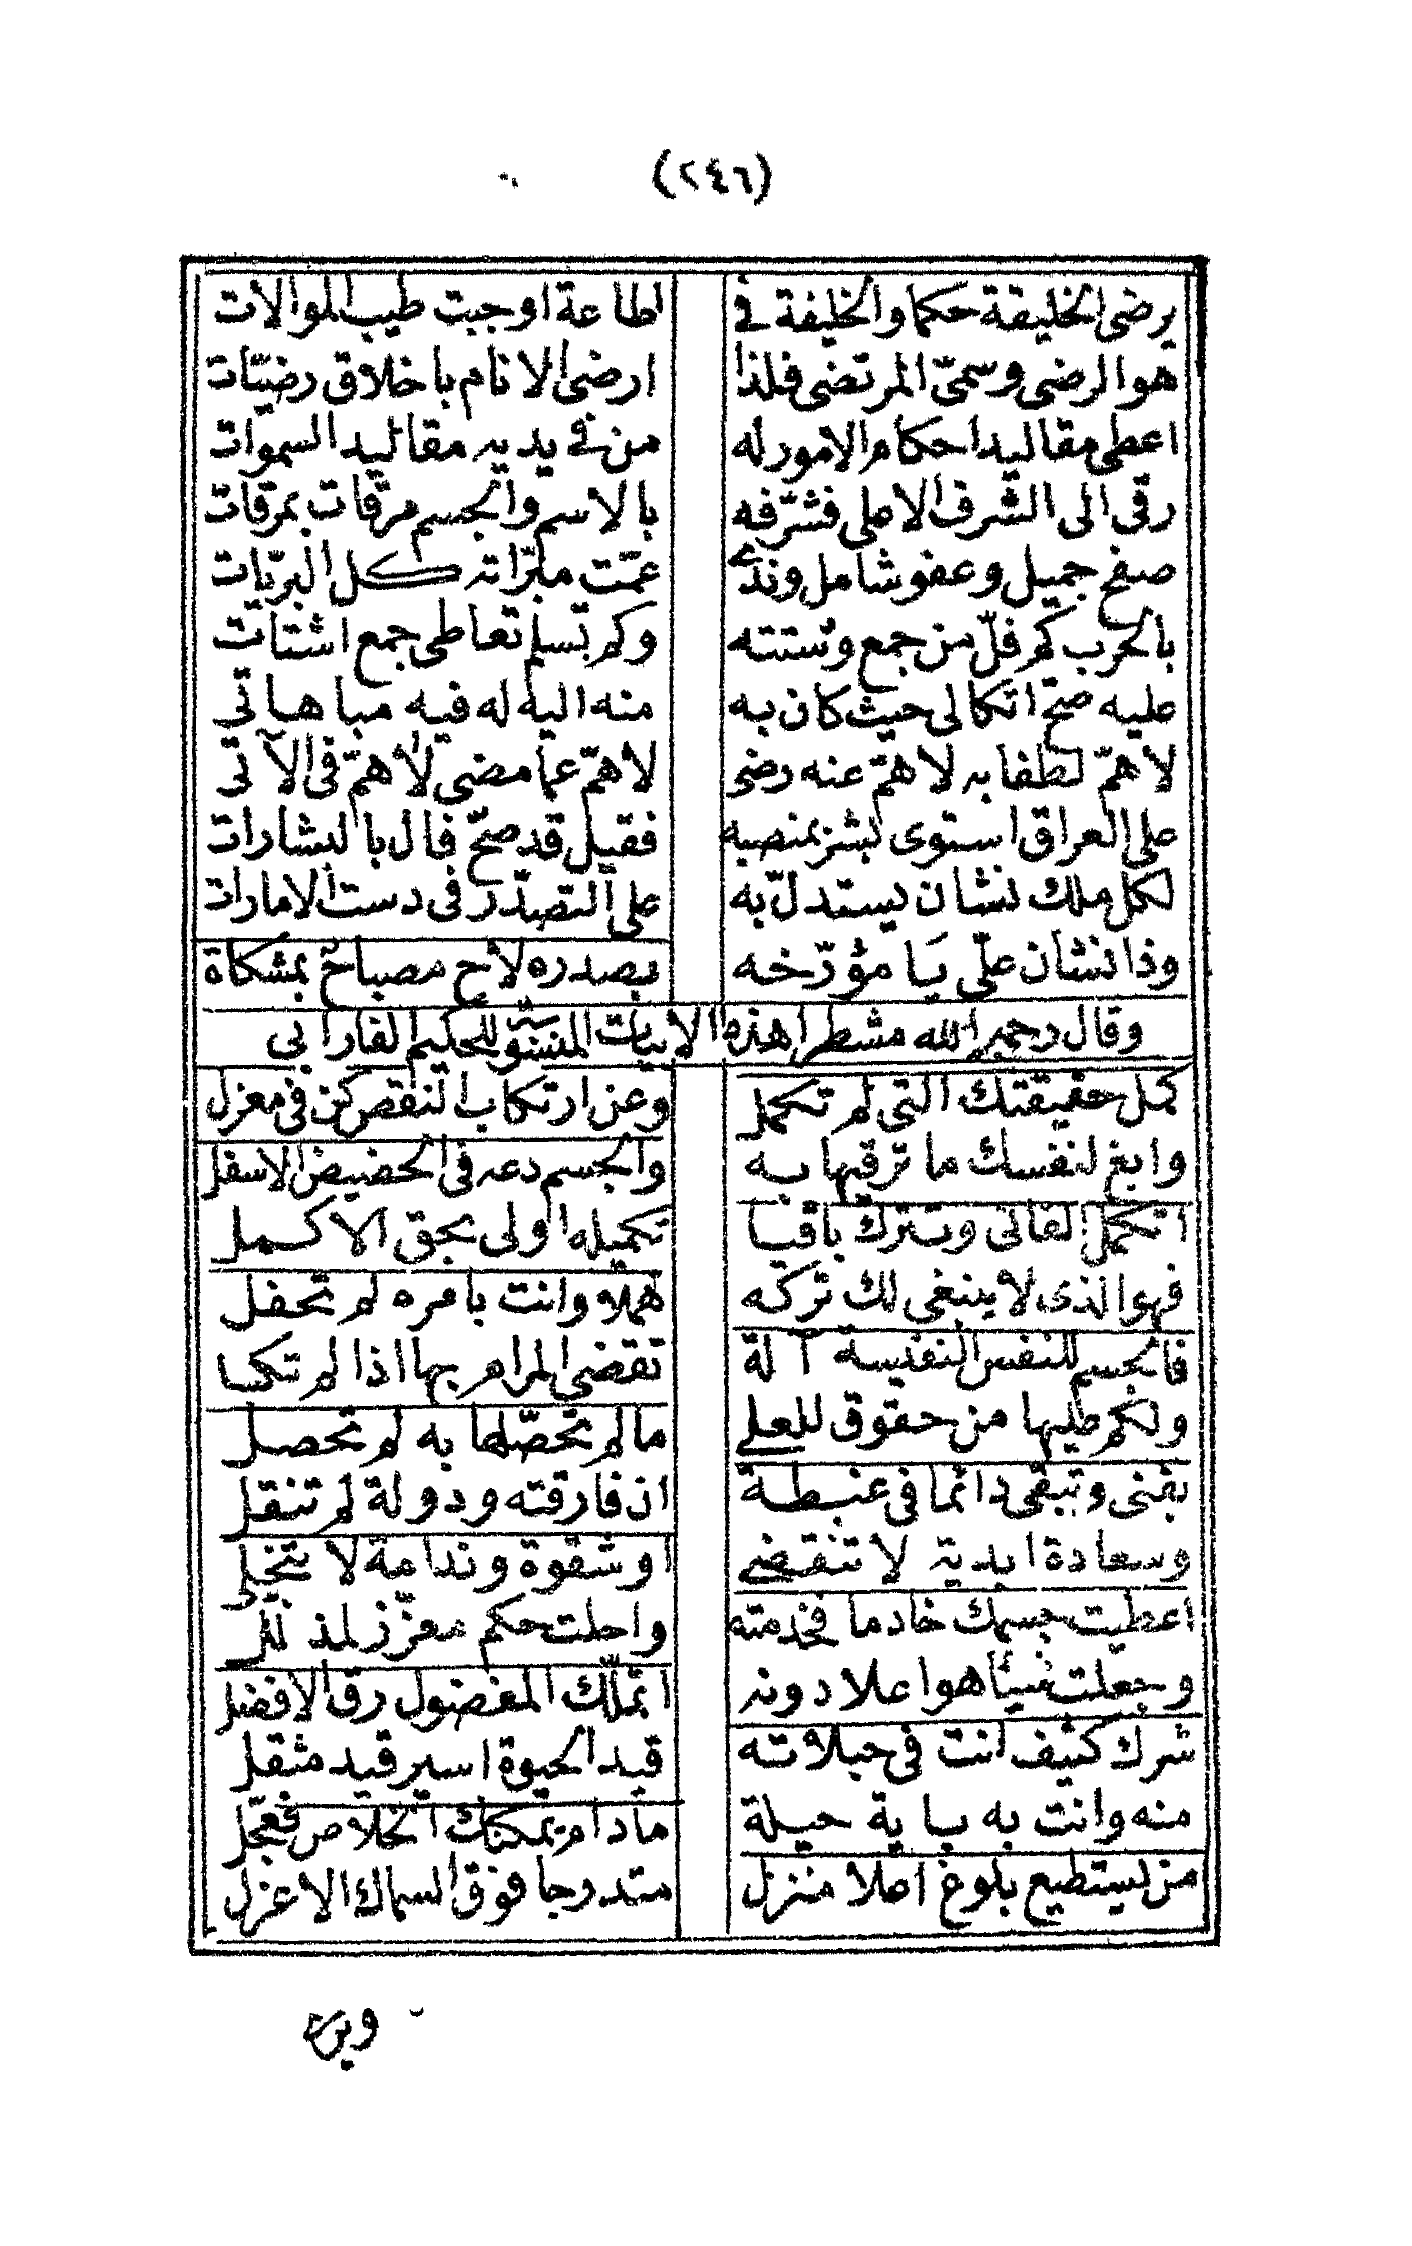 (٢٤٦)
يرضى الخليقة حكما والخليفة في اطاعة اوجبت طيب الموالات
هو الرضى وسمىّ المرتضى فلذا ارضى الانام باخلاق رضيّات
اعطى مقاليد احكام الامور له من في يديه مقاليد السموات
رقى الى الشرف الاعلى فشرّفه بالاسم والجسم مرقات بمرقات
صفح جميل وعفو شامل وندى عمّت مبرّاته كل البريّات
بالحرب كم فلّ من جمع وشتته وكم بسلم تعاطى جمع اشتات
عليه صحّ اتكالى حيث كان به منه اليه له فيه مباهاتى
لاهمّ لطفا به لاهمّ عنه رضى لاهمّ عما مضى لاهمّ فى الآتى
على العراق استوى بشر بمنصبه فقيل قد صحّ فال بالبشارات
لكل ملك نشان يستدلّ به على التصدّر فى دست الامارات
وذا نشان علّى يا مؤرّخه بصدره لاح مصباح بمشكاة
وقال رحمه الله مشطرا هذه الابيات المنسوبة للحكيم الفارابى
كمل حقيقتك التى لم تكمل وعن ارتكاب النقص كن فى معزل
وابغ لنفسك ما ترقيها به والجسم دعه فى الحضيض الاسفل
اتكمل الفانى وتترك باقيا تكميله اولى بحق الاكمل
فهو الذى لا ينبغى لك تركه هملا وانت بامره لم تحفل
فالجسم للنفس النفيسة آلة تقضى المرام بها اذا لم تكمل
ولكم عليها من حقوق للعلى مالم تحصّلها به لم تحصل
يفنى وتبقى دائما فى غبطة ان فارقته ودولة لم تنقل
وسعادة ابدية لا تنقضى او شقوة وندامة لا تنجلى
اعطيت جسمك خادما فخدمته واحلت حكم معزّز لمذلل
وجعلت شيأ هو اعلا دونه اتملّك المفضول رق الافضل
شرك كثيف انت فى حبلاته قيد الحيوة اسير قيد مثقل
منه وانت به باية حيلة مادام يمكنك الخلاص فعجّل
من يستطيع بلوغ اعلا منزل متدرجا فوق السماك الاعزل